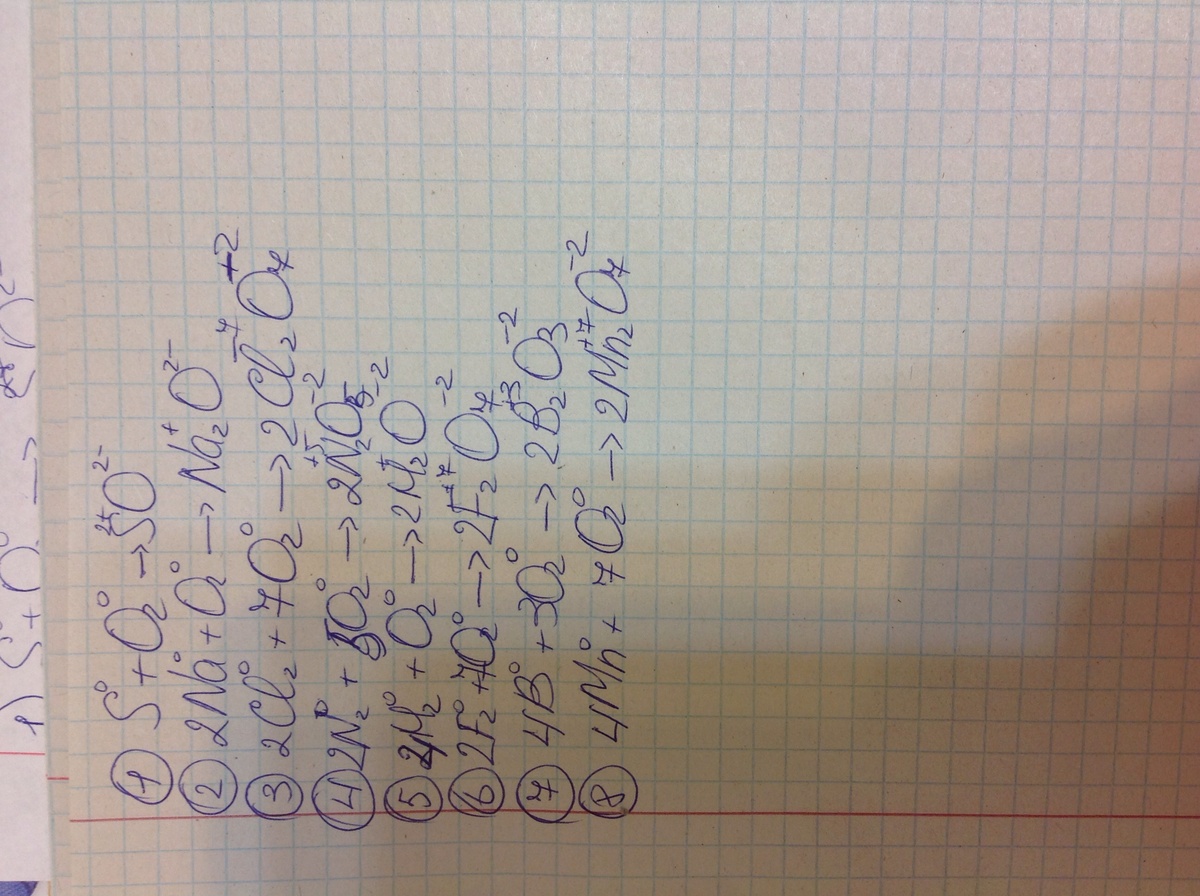 1) S⁰ + O⁰ →
① S⁰ + O₂⁰ → S²⁺O²⁻
② 2Na⁰ + O₂⁰ → Na₂⁺O²⁻
③ 2Cl₂⁰ + 7O₂⁰ → 2Cl₂⁻⁷O₇⁺²
④ 2N₂⁰ + 5O₂⁰ → 2N₂⁺⁵O₅⁻²
⑤ 2H₂⁰ + O₂⁰ → 2H₂⁺O⁻²
⑥ 2F₂⁰ + 7O₂⁰ → 2F₂⁺⁷O₇⁻²
⑦ 4B⁰ + 3O₂⁰ → 2B₂⁺³O₃⁻²
⑧ 4Mn⁰ + 7O₂⁰ → 2Mn₂⁺⁷O₇⁻²